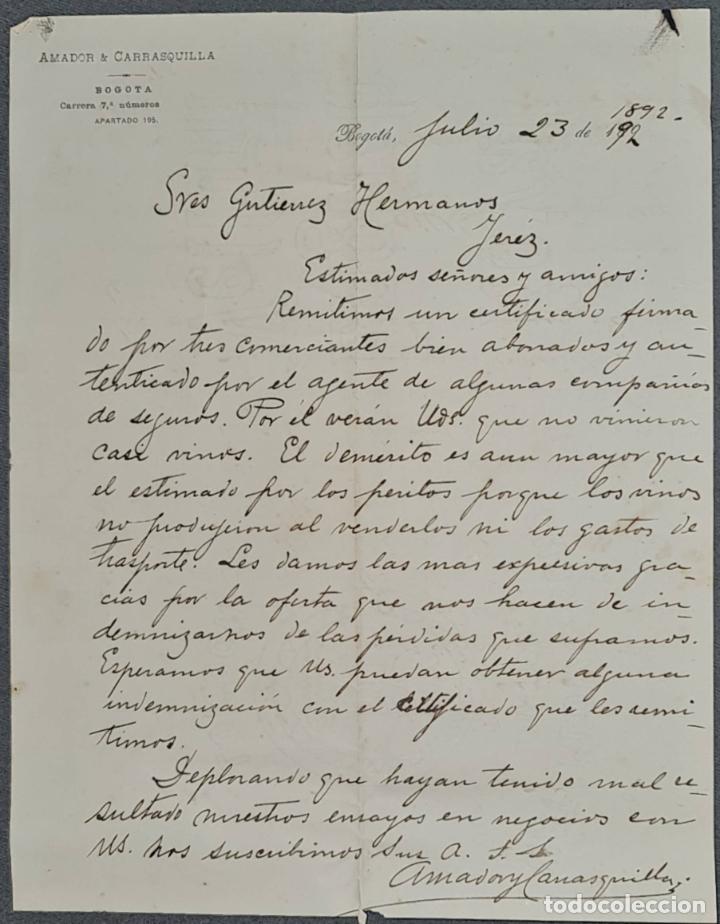 AMADOR & CARRASQUILLA
BOGOTA
Carrera 7,ª números
APARTADO 195.
1892.
Bogotá, Julio 23 de 192
Sres Gutierrez Hermanos
Jeréz.
Estimados señores y amigos:
Remitimos un certificado firma-
do por tres comerciantes bien abonados y au-
tenticado por el agente de algunas compañías
de seguros. Por él verán Uds. que no vinieron
casi vinos. El demérito es aun mayor que
el estimado por los peritos porque los vinos
no produjeron al venderlos ni los gastos de
trasporte. Les damos las mas expresivas gra-
cias por la oferta que nos hacen de in-
demnizarnos de las pérdidas que suframos.
Esperamos que Us. puedan obtener alguna
indemnización con el certificado que les remi-
timos.
Deplorando que hayan tenido mal re-
sultado nuestros ensayos en negocios con
Us. nos suscribimos Sus A. S. S.
Amador y Carrasquilla
todocoleccion